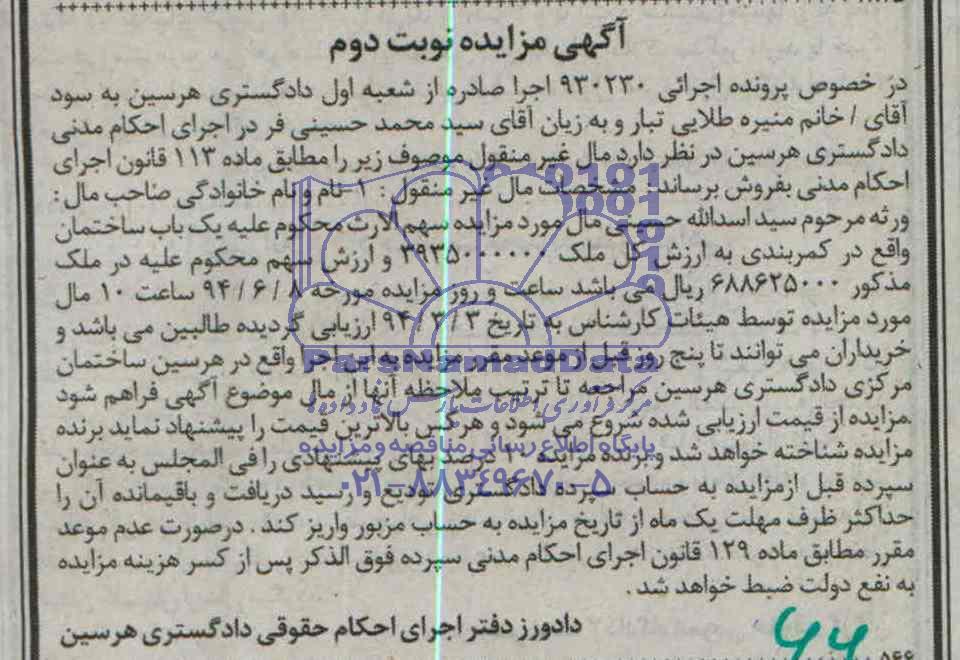 آگهی مزایده نوبت دوم
در خصوص پرونده اجرائی ۹۳۰۲۳۰ اجرا صادره از شعبه اول دادگستری هرسین به سود
آقای / خانم منیره طلایی تبار و به زیان آقای سید محمد حسینی فر در اجرای احکام مدنی
دادگستری هرسین در نظر دارد مال غیر منقول موصوف زیر را مطابق ماده ۱۱۳ قانون اجرای
احکام مدنی بفروش برساند: مشخصات مال غیر منقول : ۱-نام و نام خانوادگی صاحب مال :
ورثه مرحوم سید اسدالله حسینی مال مورد مزایده سهم الارث محکوم علیه یک باب ساختمان
واقع در کمربندی به ارزش کل ملک ۳۹۳۵۰۰۰۰۰۰ و ارزش سهم محکوم علیه در ملک
مذکور ۶۸۸۶۲۵۰۰۰ ریال می باشد ساعت و روز مزایده مورخه ۹۴ / ۶ / ۸ ساعت ۱۰ مال
مورد مزایده توسط هیئات کارشناس به تاریخ ۳ / ۳ / ۹۴ ارزیابی گردیده طالبین می باشد و
خریداران می توانند تا پنج روز قبل از موعد مقرر مزایده به این اجرا واقع در هرسین ساختمان
مرکزی دادگستری هرسین مراجعه تا ترتیب ملاحظه آنها از مال موضوع آگهی فراهم شود
.مزایده از قیمت ارزیابی شده شروع می شود و هرکس بالاترین قیمت را پیشنهاد نماید برنده
مزایده شناخته خواهد شد و برنده مزایده ۱۰ درصد بهای پیشنهادی را فی المجلس به عنوان
سپرده قبل ازمزایده به حساب سپرده دادگستری تودیع و رسید دریافت و باقیمانده آن را
حداکثر ظرف مهلت یک ماه از تاریخ مزایده به حساب مزبور واریز کند . درصورت عدم موعد
مقرر مطابق ماده ۱۲۹ قانون اجرای احکام مدنی سپرده فوق الذکر پس از کسر هزینه مزایده
به نفع دولت ضبط خواهد شد .
دادورز دفتر اجرای احکام حقوقی دادگستری هرسین
ParsNamadData
پایگاه اطلاع رسانی مناقصه و مزایده
۰۲۱-۸۸۳۴۹۶۷۰-۵